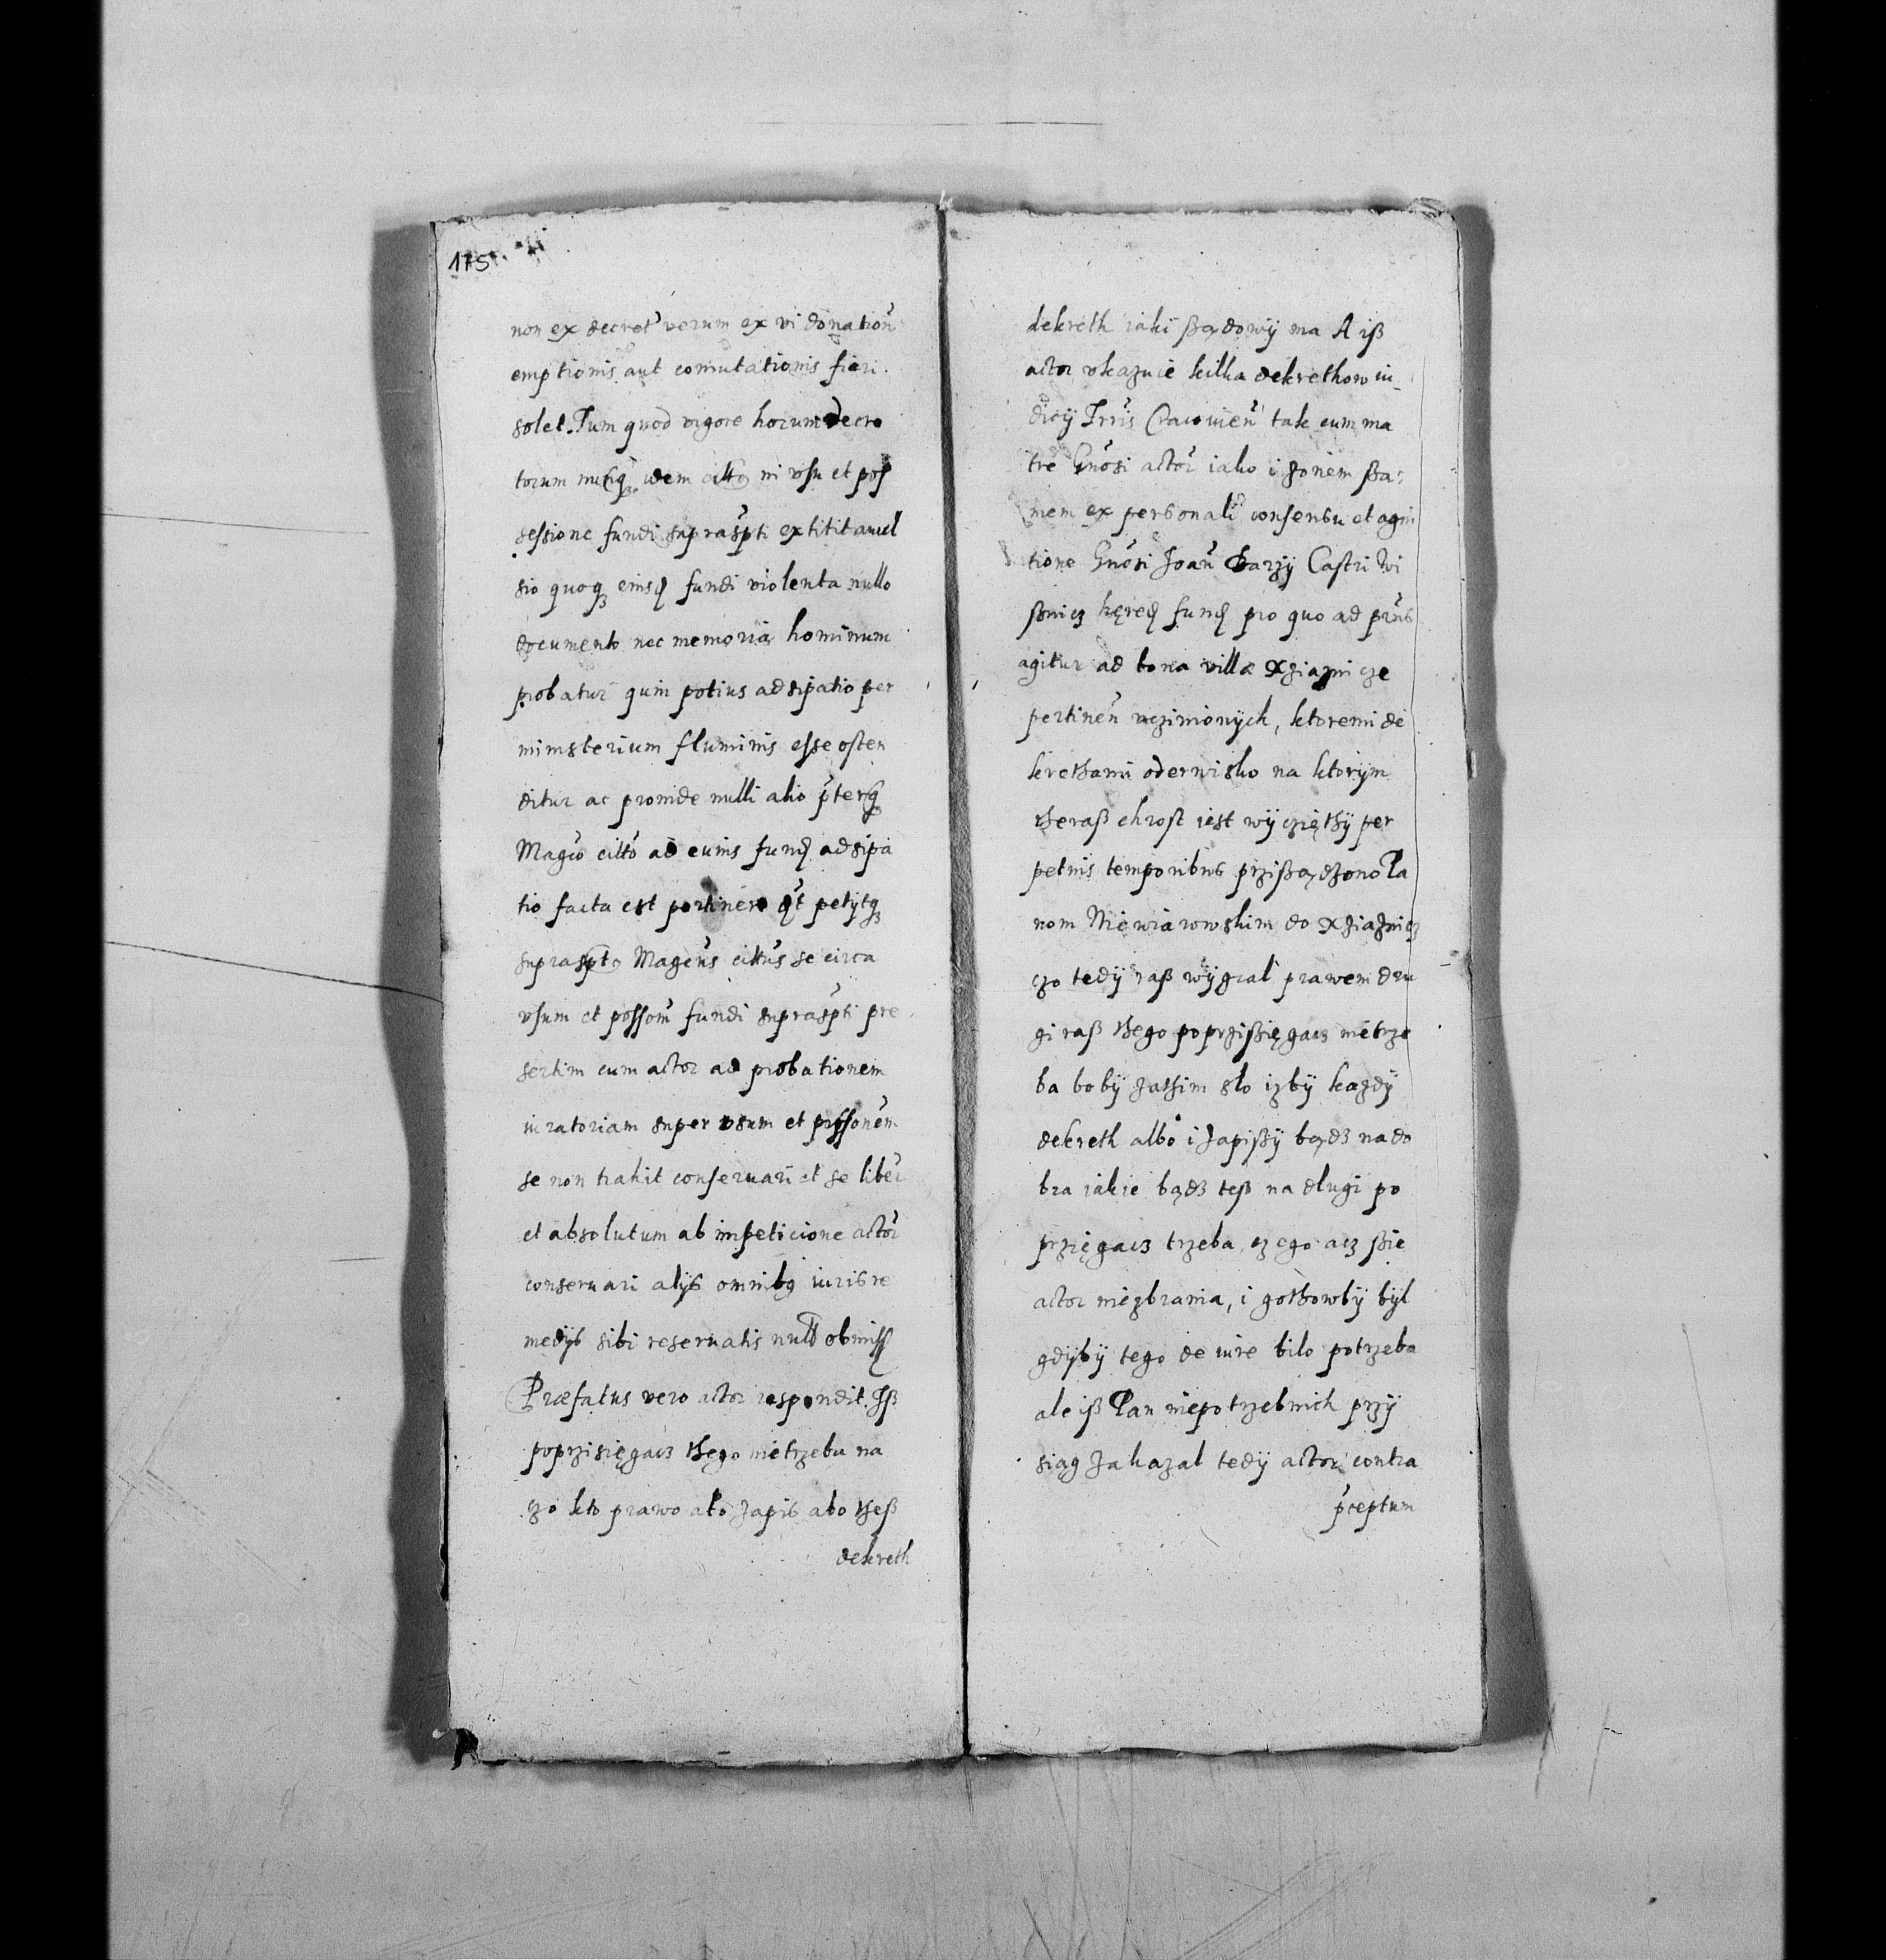 175
non ex decret verum ex vi donation
emptionis aut comutationis fieri
solet. Tum quod vigore horum decre
torum nusq idem citto in vsu et pos
sessione fundi supraspti extitit auul
sio quoq eiusd fundi violenta nullo
documento nec memoria hominum
probatur quin potius adsipatio per
ministerium fluminis esse osten
ditur ac proinde nulli alio pterq
Magco citto ad cuius fund adsipa
tio facta est pertinere pt petytq
supraspto Magcus cittus se circa
vsum et possom fundi supraspti pre
sertim cum actor ad probationem
iuratoriam super vsum et possonem
se non trahit conseruari et se liber
et absolutum ab impeticione actor
conseruari alijs omnibq iuris re
medijs sibi reseruatis null obmiss
Præfatus vero actor respondit. Iß
poprzisięgacz thego nietrzeba na
czo kto prawo abo zapis abo theß
dekreth
dekreth iaki ßądowÿ ma A iß
actor vkazuie kilka dekrethow iu
dicÿ Trris Cracouien tak cum ma
tre Gnosi actor iako i zoniem ßa:
mem ex personali consensu et agni
tione Gnosi Joan Barzÿ Castri Wi
ßnicz hęred fund pro quo ad prns
agitur ad bona villæ Xziaznicze
pertinen vczinionÿch, ktoremi de
krethami oderwisko na ktorÿm
theraß chrost iest wÿcziethÿ per
petuis temporibus przißądzono Pa
nom Niewiarowskim do Xziaznicz
czo tedÿ raß wÿgral prawem dru
gi raß thego poprzißięgacz nietrze
ba bo bÿ zathim slo izbÿ kazdÿ
dekreth albo i zapißÿ bądz na do
bra iakie bądz teß na dlugi po
przięgacz trzeba czego acz ßie
actor niezbrania, i gothowbÿ bÿl
gdÿbÿ tego de iure bilo potrzeba
ale iß Pan niepotrzebnich przÿ
siąg zakazal tedÿ actor contra
pceptum